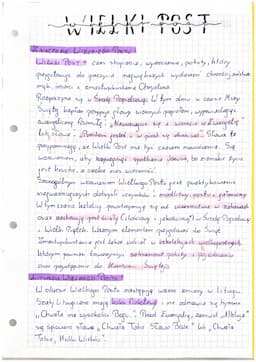 WIELKI POST
Znaczenie Wielkiego Postu
Wielki Post - czas skupienia, wyciszenia, pokuty, który
przygotowuje do przeżycia największych wydarzeń chrześcijaństwa
męki, śmierci i zmartwychwstania Chrystusa.
Rozpoczyna się w Środę Popielcową. W tym dniu w czasie Mszy
Świętej kapłan posypuje głowy wiernych popiołem, wypowiadając
formułę: „Nawracajcie się i wierzcie w Ewangelię"
lub słowa: „Prochem jesteś i w proch się obrócisz". Słowa te
przypominają, że Wielki Post ma być czasem nawrócenia. Są
wezwaniem, aby spotkania Jezusa, bo ziemskie życie
jest kruche, a czeka nas wieczność.
Szczególnym wezwaniem Wielkiego Postu jest praktykowanie
najważniejszych dobrych uczynków: modlitwy, postu i jałmużny.
W tym czasie katolicy powstrzymują się od uczestnictwa w zabawach
oraz zachowują post ścisły (ilościowy i jakościowy) w Środę Popielcową
i Wielki Piątek. Ważnym elementem przygotowania do Świąt
Zmartwychwstania jest także udział w rekolekcjach wielkopostnych,
którym powinno towarzyszyć sakrament pokuty i pojednania
oraz przystąpienie do Komunii Świętej.
Liturgia Wielkiego Postu
W okresie Wielkiego Postu następują ważne zmiany w liturgii.
Szaty liturgiczne mają kolor fioletowy i nie odmawia się hymnu
„Chwała na wysokości Bogu". Przed Ewangelią, zamiast „Alleluja"
się śpiewa słowa „Chwała Tobie Słowo Boże" lub „Chwała
Tobie, Królu Wieków".